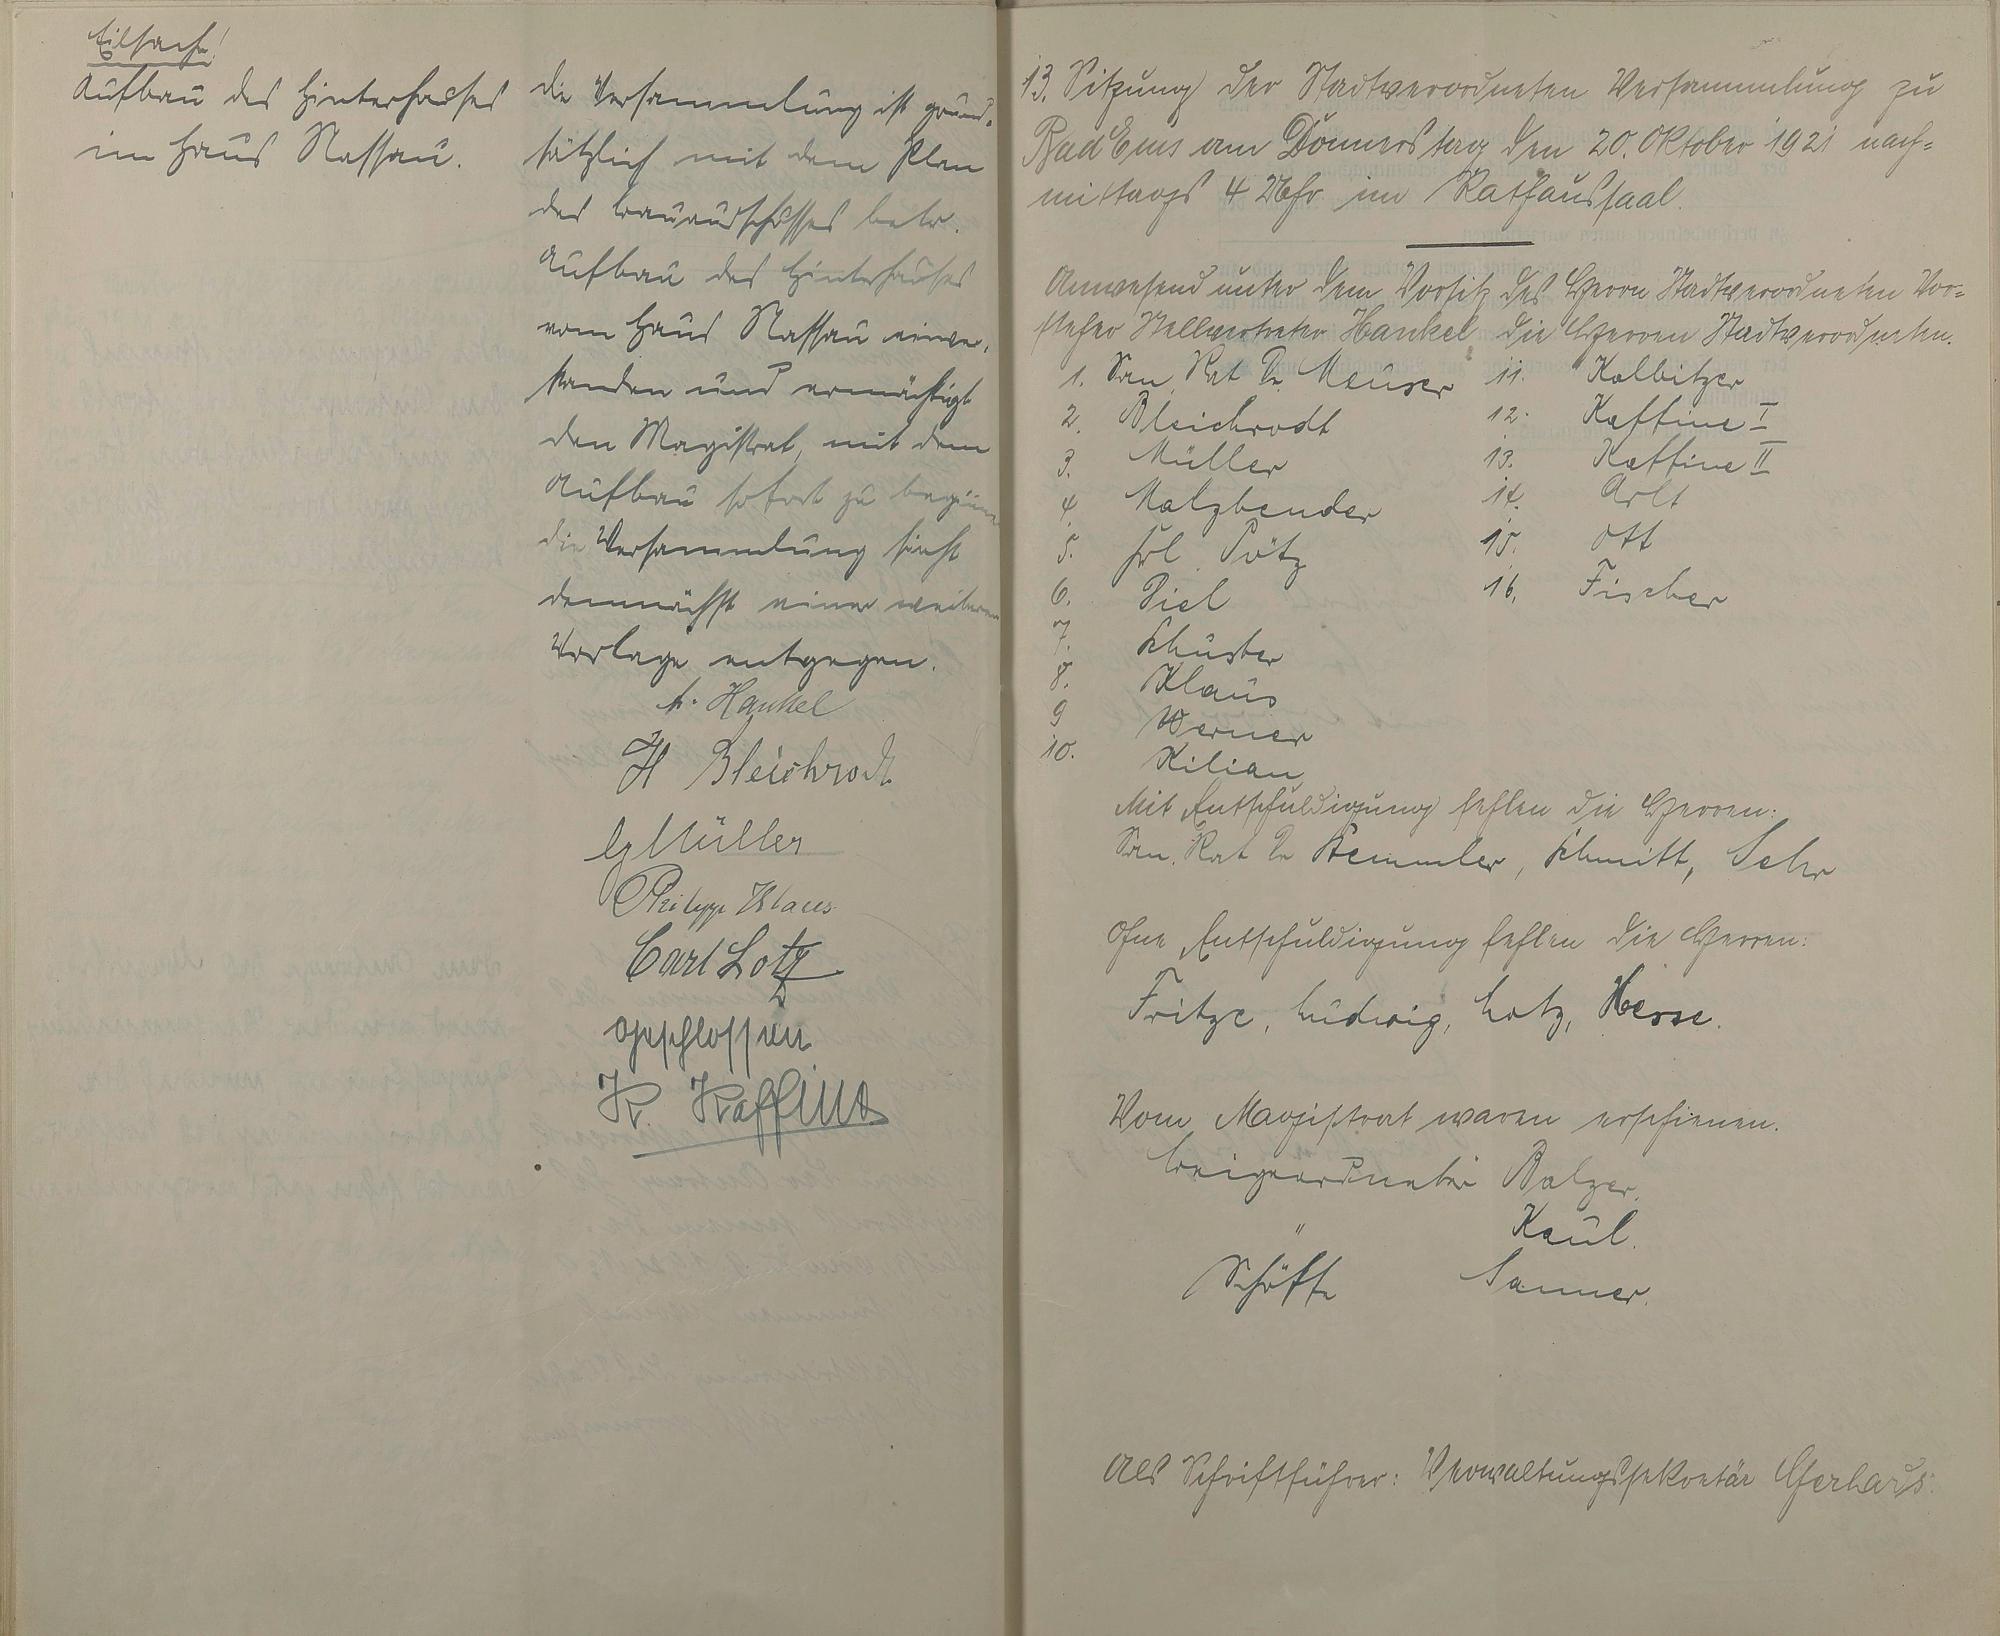 Eilsache!
Aufbau des Hinterhauses
im Haus Nassau.
Die Versammlung ist grund-
sätzlich mit dem Plan
des Bauausschusses betr.
Aufbau des Hinterhauses
vom Haus Nassau einver-
standen und ermächtigt
den Magistrat, mit dem
Aufbau sofort zu beginnen
die Versammlung sieht
demnächst einer weiteren
Vorlage entgegen.
A. Hankel
H Bleichrodt
Müller
Philipp Klaus
Carl Lotz
Geschlossen
K. Kaffine
13. Sitzung der Stadtverordneten Versammlung zu
Bad Ems am Donnerstag den 20. Oktober 1921 nach-
mittags 4 Uhr im Rathaussaal.
Anwesend unter dem Vorsitz des Herrn Stadtverordneten Vor-
steher Stellvertreter Hankel die Herren Stadtverordneten.
1. San. Rat Dr. Meuser
2. Bleichrodt
3. Müller
4. Malzbender
5. Frl. Pötz
6. Piel
7. Schuster
8. Klaus
9 Werner
10. Kilian
11. Kalbitzer
12. Kaffine I
13. Kaffine II
14. Arlt
15. Ott
16. Fischer
Mit Entschuldigung fehlen die Herren:
San. Rat Dr Stemmler, Schmitt, Sehr
Ohne Entschuldigung fehlen die Herren:
Fritze, Ludwig, Lotz, Hesse.
Vom Magistrat waren erschienen.
Beigeordneter Balzer.
" Kaul.
Schöffe Sanner.
Als Schriftführer: Verwaltungssekretär Gerhaus.